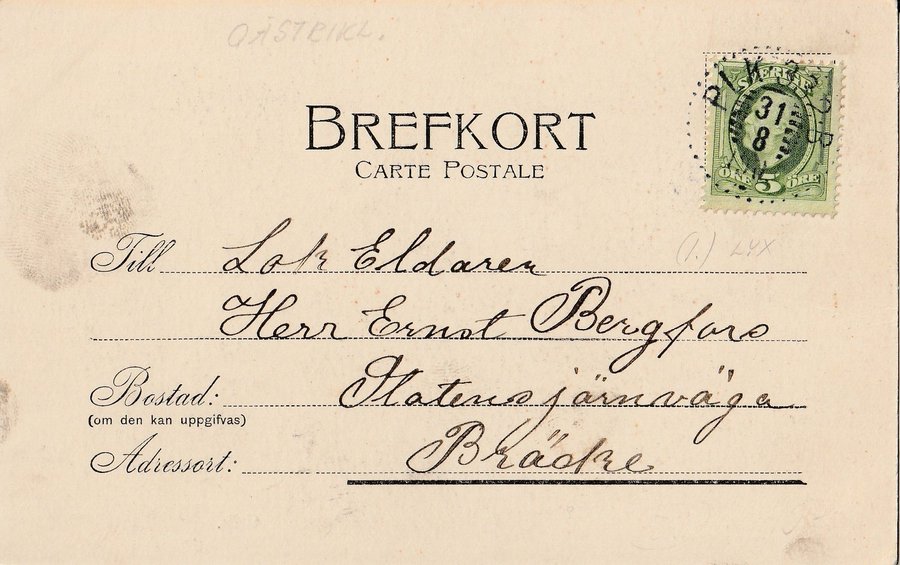 GÄSTRIKL.
BREFKORT
CARTE POSTALE
PLK 332 B
31
8
SVERIGE
ÖRE 5 ÖRE
(1.) LYX
Till Lok Eldaren
Herr Ernst Bergfors
Bostad: Statensjärnväga
(om den kan uppgifvas)
Adressort: Bräcke